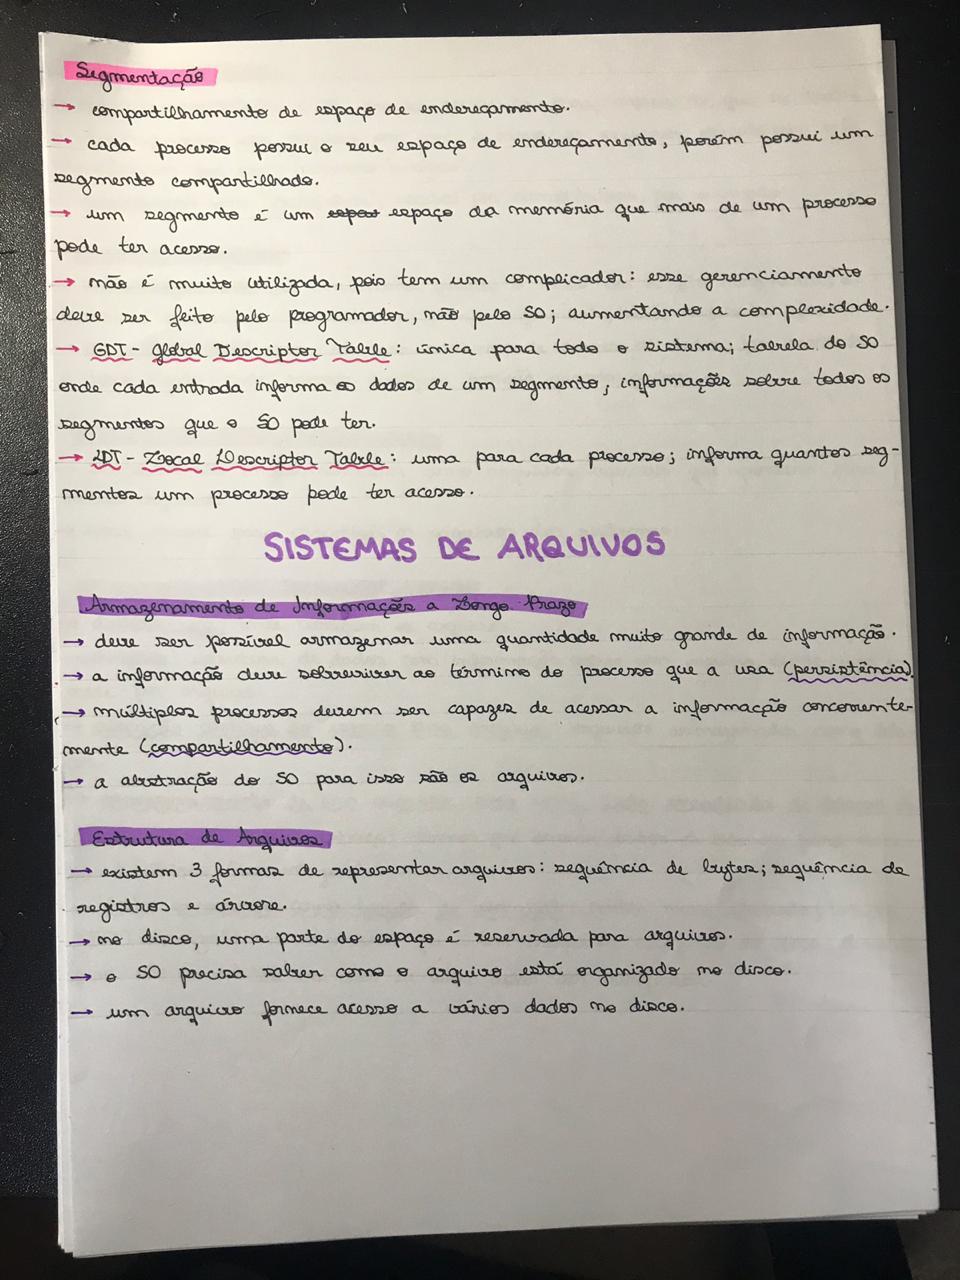 Segmentação
→ compartilhamento de espaço de endereçamento.
→ cada processo possui o seu espaço de endereçamento, porém possui um
segmento compartilhado.
→ um segmento é um espaço da memória que mais de um processo
pode ter acesso.
→ não é muito utilizada, pois tem um complicador: esse gerenciamento
deve ser feito pelo programador, não pelo SO; aumentando a complexidade.
→ GDT - Global Descriptor Table: única para todo o sistema; tabela do SO
onde cada entrada informa os dados de um segmento, informações sobre todos os
segmentos que o SO pode ter.
→ LDT - Local Descriptor Table: uma para cada processo; informa quantos seg-
mentos um processo pode ter acesso.
SISTEMAS DE ARQUIVOS
Armazenamento de Informações a Longo Prazo
→ deve ser possível armazenar uma quantidade muito grande de informação.
→ a informação deve sobreviver ao término do processo que a usa (persistência).
→ múltiplos processos devem ser capazes de acessar a informação concorrente-
mente (compartilhamento).
→ a abstração do SO para isso são os arquivos.
Estrutura de Arquivos
→ existem 3 formas de representar arquivos: sequência de bytes; sequência de
registros e árvore.
→ no disco, uma parte do espaço é reservada para arquivos.
→ o SO precisa saber como o arquivo está organizado no disco.
→ um arquivo fornece acesso a vários dados no disco.